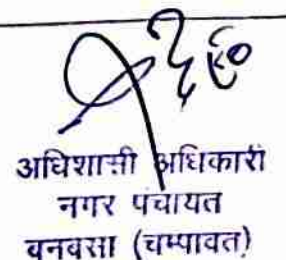 अधिशासी अधिकारी
नगर पंचायत
बनबसा (चम्पावत)